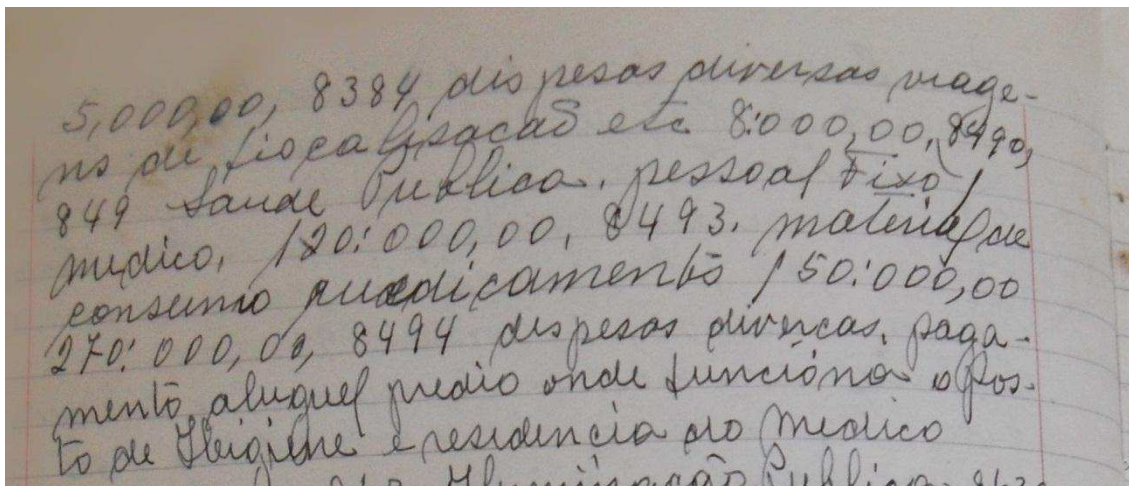 5,000,00, 8384 dispesas diversas viage-
ns de fiscalisacaõ etc 8:000,00, 8490,
849 Saude Publica. pessoal Fixo/
medico, 120:000,00, 8493. material de
consumo medicamento 150:000,00
270:000,00, 8494 dispesas divercas. paga-
mento, aluguel predio onde funciona o Pos-
to de Higiene e residencia do medico
Iluminação Publica